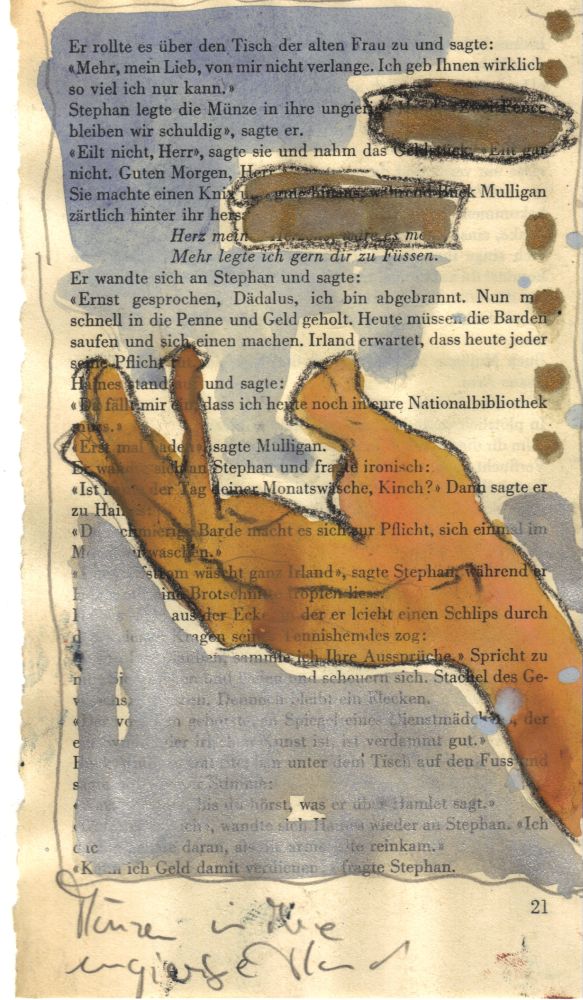 Er rollte es über den Tisch der alten Frau zu und sagte:
«Mehr, mein Lieb, von mir nicht verlange. Ich geb Ihnen wirklich
so viel ich nur kann.»
Stephan legte die Münze in ihre ungierige
bleiben wir schuldig», sagte er.
«Eilt nicht, Herr», sagte sie und nahm das Geldstück. «Eilt gar
nicht. Guten Morgen, Herr
Sie machte einen Knix während Buck Mulligan
zärtlich hinter ihr
Herz mein
Mehr legte ich gern dir zu Füssen.
Er wandte sich an Stephan und sagte:
«Ernst gesprochen, Dädalus, ich bin abgebrannt. Nun
schnell in die Penne und Geld geholt. Heute müssen die Barden
saufen und sich einen machen. Irland erwartet, dass heute jeder
seine Pflicht
Haines stand und sagte:
fällt mir dass ich heute noch in eure Nationalbibliothek
muss.»
«Erst mal baden» sagte Mulligan.
Er wandte sich an Stephan und fragte ironisch:
«Ist der Tag deiner Monatswäsche, Kinch?» Dann sagte er
zu Haines:
schmierige Barde macht es sich zur Pflicht, sich einmal im
waschen.»
wäscht ganz Irland», sagte Stephan, während er
Brotschnitte tropfen liess.
aus der Ecke, in der er leicht einen Schlips durch
Kragen seines Tennishemdes zog:
sammle ich Ihre Aussprüche.» Spricht zu
und scheuern sich. Stachel des Ge-
Dennoch bleibt ein Flecken.
Spiegel eines Dienstmädchens, der
Kunst ist, ist verdammt gut.»
unter dem Tisch auf den Fuss und
Stimme:
bis du hörst, was er über Hamlet sagt.»
wandte sich Haines wieder an Stephan. «Ich
daran, als reinkam.»
«Kann ich Geld damit verdienen» fragte Stephan.
21
Münzen in ihre
ungierige Hand